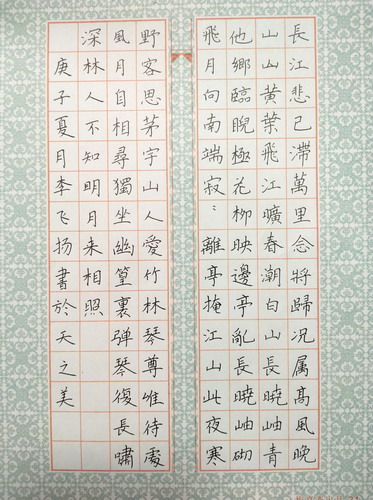 長江悲已滯萬里念將歸况属高風晚
山山黃葉飛江曠春潮白山長曉岫青
他鄉臨睨極花柳映邊亭亂長曉岫砌
飛月向南端寂〻離亭掩江山此夜寒
野客思茅宇山人愛竹林琴尊惟待處
風月自相尋獨坐幽篁裏弹琴復長嘯
深林人不知明月来相照
庚子夏月李飞扬書於天之美